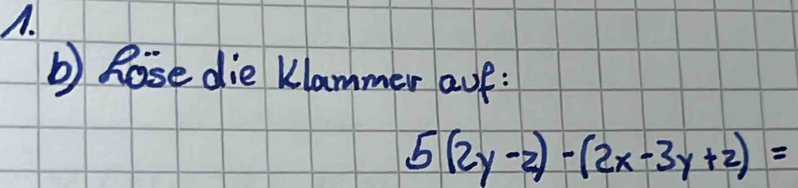 1.
b) Löse die Klammer auf:
5(2y-z)-(2x-3y+z)=